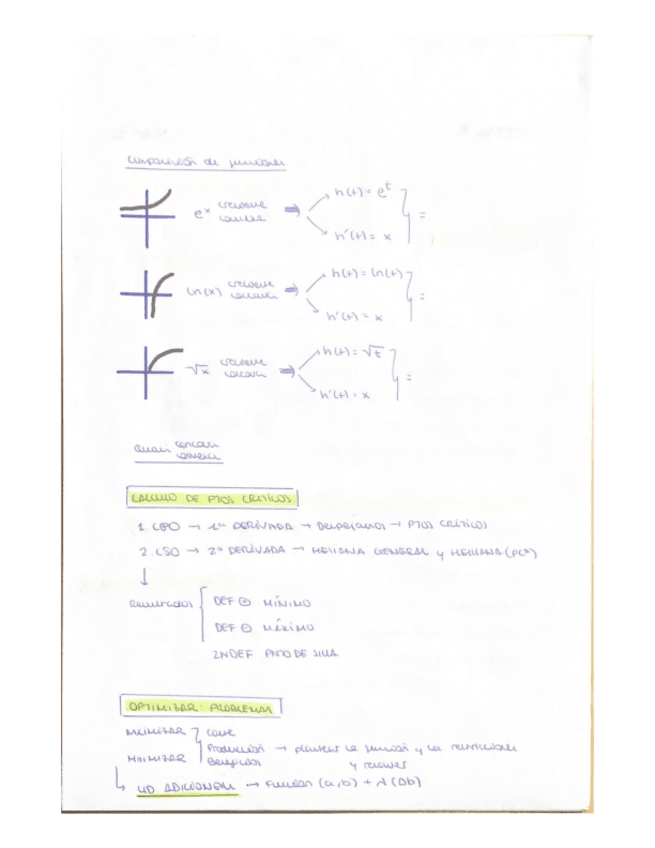 Composición de funciones
eˣ creciente convexa ⇒ h(t) = eᵗ
h'(t) = x } =
ln(x) creciente concava ⇒ h(t) = ln(t)
h'(t) = x } =
√x creciente concava ⇒ h(t) = √t
h'(t) = x } =
Cuasi concava
convexa
CALCULO DE PTOS CRITICOS
1. CPO → 1ª DERIVADA → Despejamos → PTOS CRÍTICOS
2. CSO → 2ª DERIVADA → HESSIANA GENERAL y HESSIANA (PC*)
↓
Resultados { DEF ⊕ MÍNIMO
DEF ⊖ MÁXIMO
INDEF PNTO DE SILLA
OPTIMIZAR: PROBLEMA
MAXIMIZAR
Producción → plantear la función y las restricciones
MINIMIZAR Beneficios y resolver
UD ADICIONAL → Función (a,b) + λ (Δb)